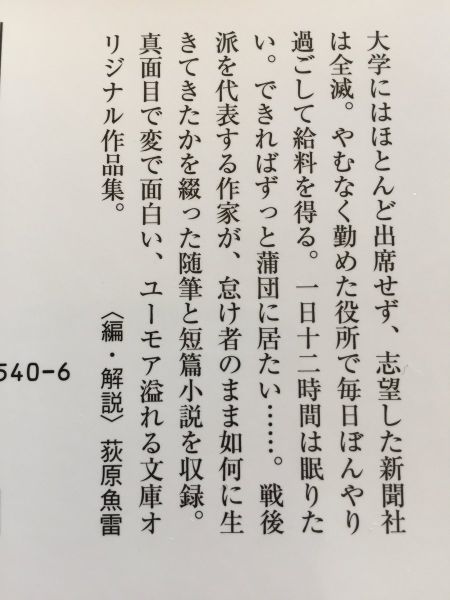 大学にはほとんど出席せず、志望した新聞社
は全滅。やむなく勤めた役所で毎日ぼんやり
過ごして給料を得る。一日十二時間は眠りた
い。できればずっと蒲団に居たい……。戦後
派を代表する作家が、怠け者のまま如何に生
きてきたかを綴った随筆と短篇小説を収録。
真面目で変で面白い、ユーモア溢れる文庫オ
リジナル作品集。
〈編・解説〉荻原魚雷
540-6